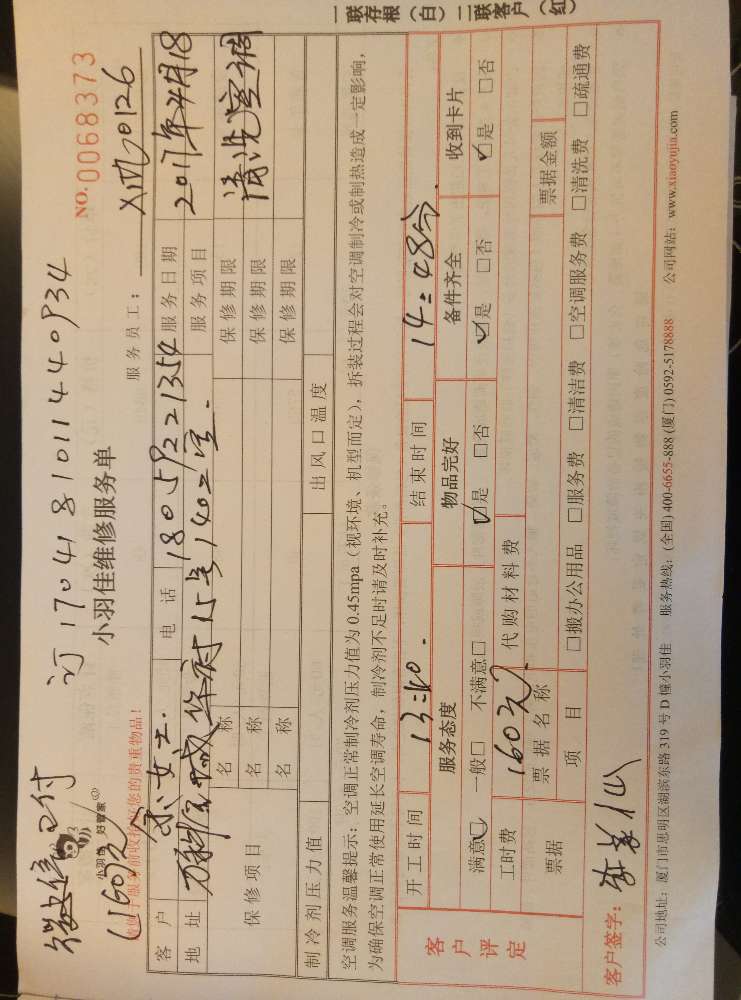 订1704181011440934
微信已付
160元
小羽佳 好管家
小羽佳维修服务单
NO.0068373
服务员工: XM20126
请您于服务前收拾好您的贵重物品!
客户 余女士 电话 18059221354 服务日期 2017年4月18
地址 万科金域华府15号1402室 服务项目 清洗空调
保修项目 名称 保修期限
名称 保修期限
名称 保修期限
制冷剂压力值 出风口温度
空调服务温馨提示:空调正常制冷剂压力值为 0.45mpa(视环境、机型而定),拆装过程会对空调制冷或制热造成一定影响,
为确保空调正常使用延长空调寿命,制冷剂不足时请及时补充。
客户评定
开工时间 13:40 结束时间 14:48分
服务态度 物品完好 备件齐全 收到卡片
满意☑ 一般□ 不满意□ ☑是 □否 ☑是 □否 ☑是 □否
工时费 160元 代购材料费
票据 票据名称 票据金额
项目 □搬办公用品 □服务费 □清洁费 □空调服务费 □清洗费 □疏通费
客户签字:
公司地址:厦门市思明区湖滨东路 319 号 D 幢小羽佳 服务热线:(全国) 400-6655-888 (厦门) 0592-5178888 公司网站:www.xiaoyujia.com
一联存根(白) 二联客户(红)